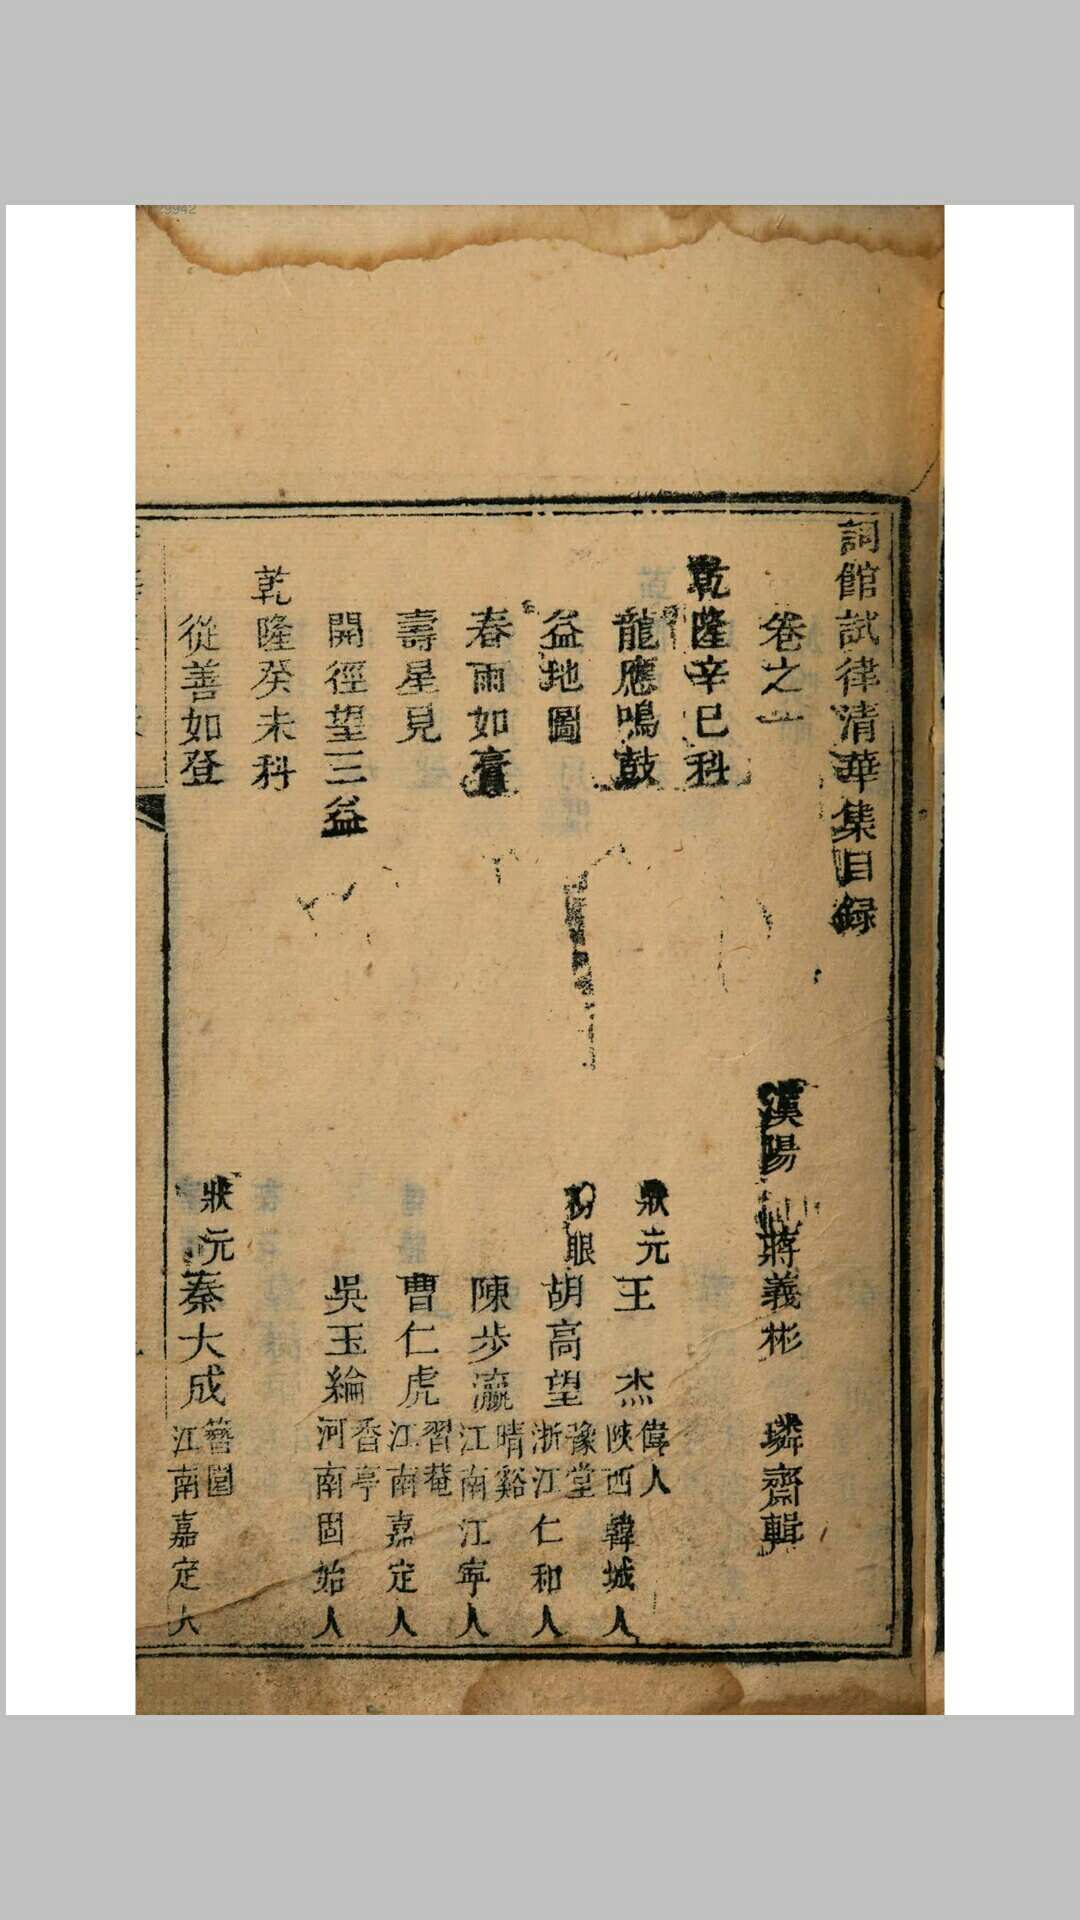 詞館試律清華集目録
卷之一 漢陽 蔣義彬 璘齋輯
乾隆辛巳科
龍應鳴鼓 狀元 王 杰 偉人 陝西韓城人
益地圖 榜眼 胡高望 豫堂 浙江仁和人
春雨如膏 陳步瀛 晴谿 江南江寧人
壽星見 曹仁虎 習菴 江南嘉定人
開徑望三益 吳玉綸 香亭 河南固始人
乾隆癸未科
從善如登 狀元 秦大成 簪園 江南嘉定人